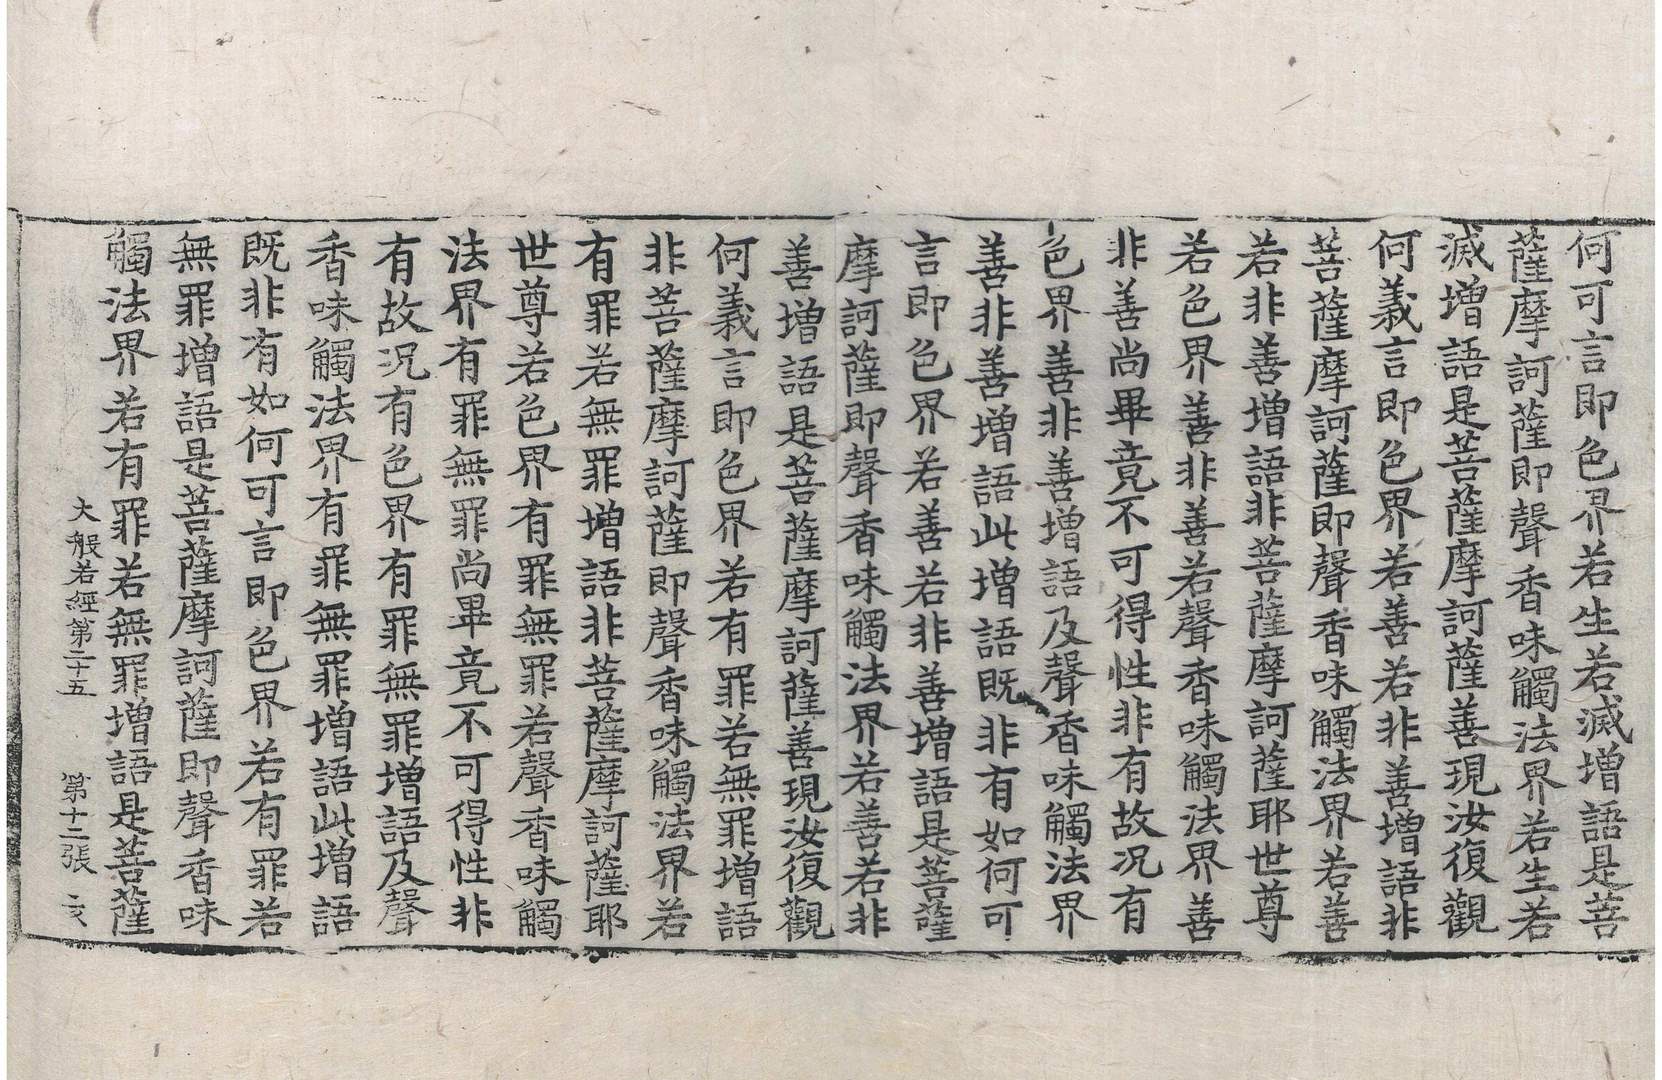 何可言即色界若生若滅增語是菩
薩摩訶薩即聲香味觸法界若生若
滅增語是菩薩摩訶薩善現汝復觀
何義言即色界若善若非善增語非
菩薩摩訶薩即聲香味觸法界若善
若非善增語非菩薩摩訶薩耶世尊
若色界善非善若聲香味觸法界善
非善尚畢竟不可得性非有故况有
色界善非善增語及聲香味觸法界
善非善增語此增語既非有如何可
言即色界若善若非善增語是菩薩
摩訶薩即聲香味觸法界若善若非
善增語是菩薩摩訶薩善現汝復觀
何義言即色界若有罪若無罪增語
非菩薩摩訶薩即聲香味觸法界若
有罪若無罪增語非菩薩摩訶薩耶
世尊若色界有罪無罪若聲香味觸
法界有罪無罪尚畢竟不可得性非
有故况有色界有罪無罪增語及聲
香味觸法界有罪無罪增語此增語
既非有如何可言即色界若有罪若
無罪增語是菩薩摩訶薩即聲香味
觸法界若有罪若無罪增語是菩薩
大般若經第二十五 第十二張